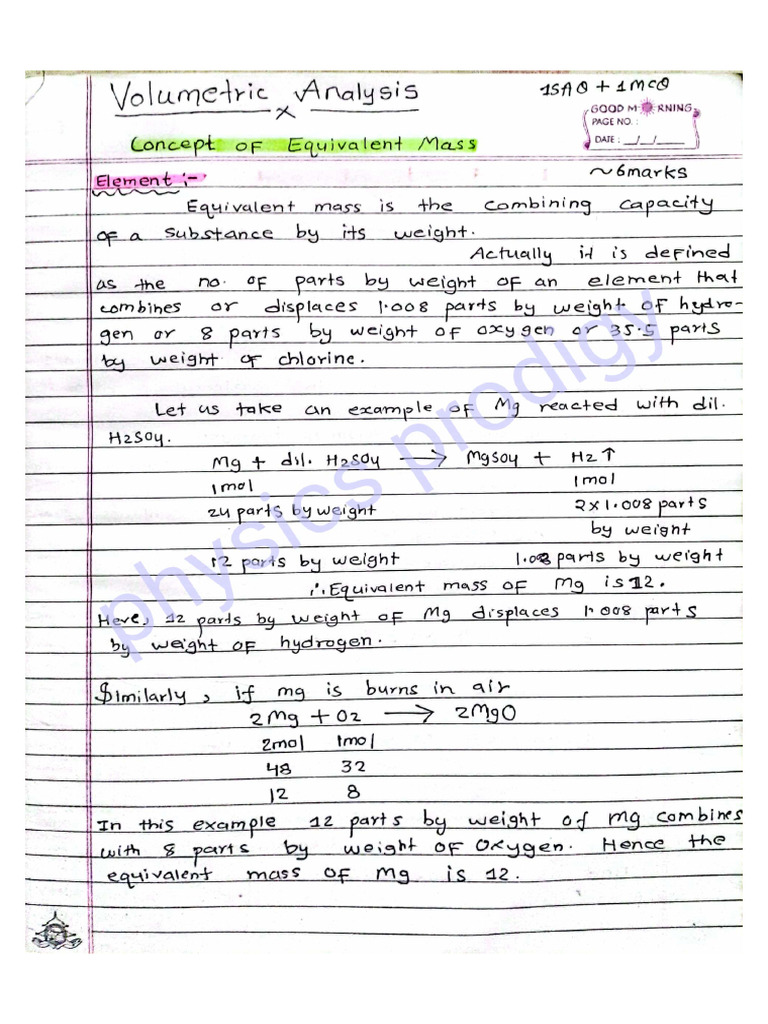 Volumetric Analysis
1SAQ + 1MCQ
x
GOOD MORNING
PAGE NO. :
DATE : __/__/__
Concept of Equivalent Mass
~6marks
Element :-
Equivalent mass is the combining capacity
of a substance by its weight.
Actually it is defined
as the no. of parts by weight of an element that
combines or displaces 1.008 parts by weight of hydro-
gen or 8 parts by weight of oxygen or 35.5 parts
by weight of chlorine.
Let us take an example of Mg reacted with dil.
H2SO4.
Mg + dil. H2SO4 → MgSO4 + H2↑
1mol 1mol
24 parts by weight 2x1.008 parts
by weight
12 parts by weight 1.008 parts by weight
∴ Equivalent mass of Mg is 12.
Here, 12 parts by weight of Mg displaces 1.008 parts
by weight of hydrogen.
Similarly, if mg is burns in air
2Mg + O2 → 2MgO
2mol 1mol
48 32
12 8
In this example 12 parts by weight of mg combines
with 8 parts by weight of oxygen. Hence the
equivalent mass of Mg is 12.
physics prodigy